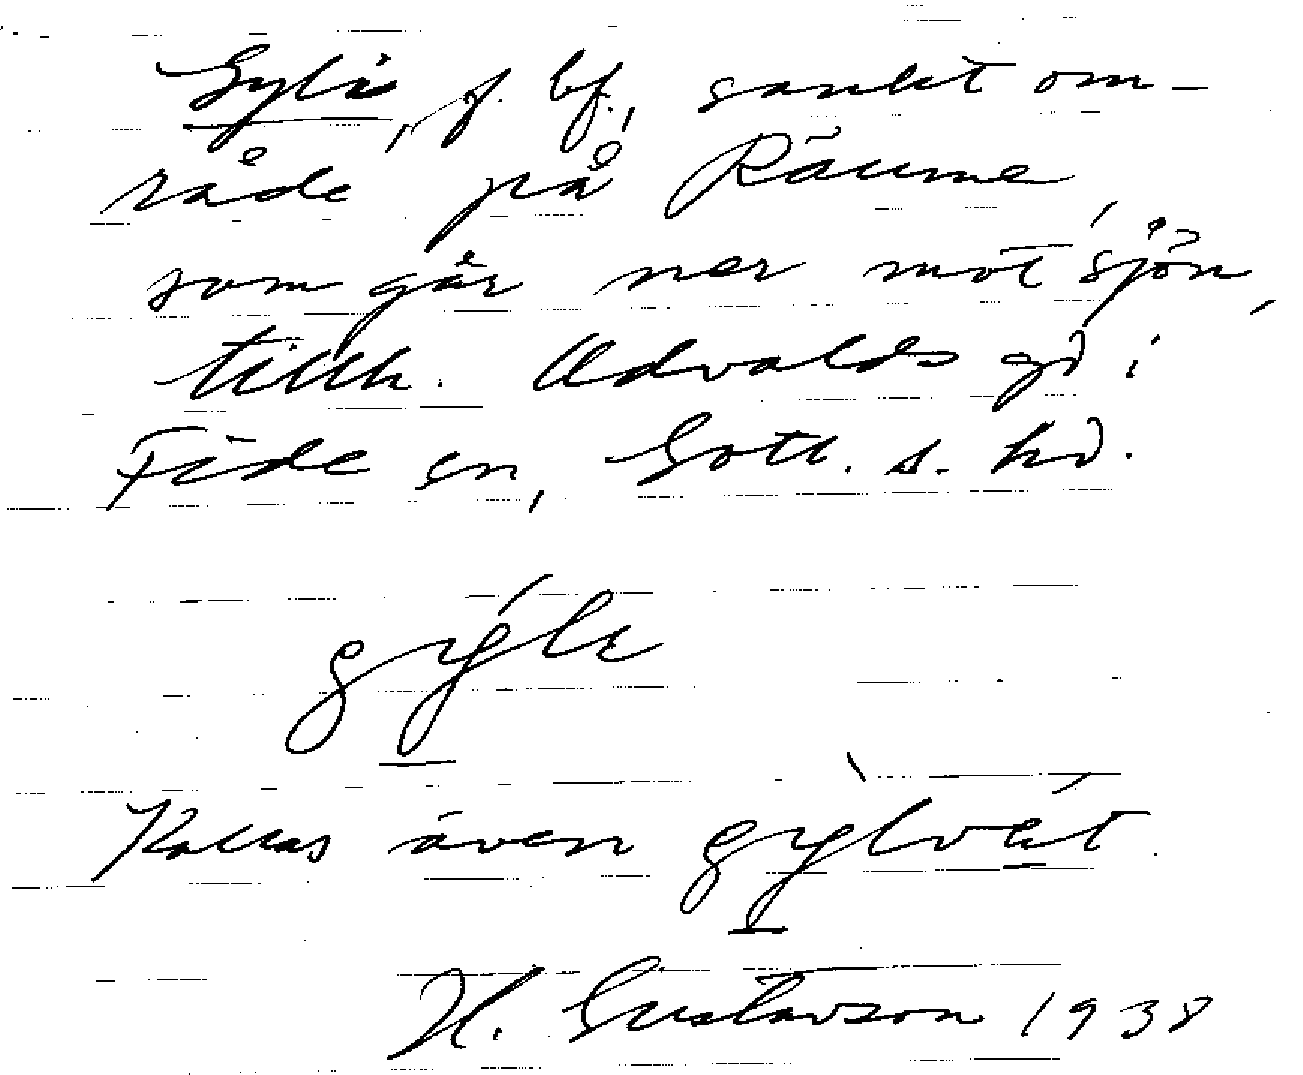 Gyli, f. bf., sankt om-
råde på Räume
som går ner mot sjön,
tillh. Udvalds gd i
Fide sn, Gotl. s. hd.
gýlı
Kallas även gỳlvät.
H. Gustavson 1938